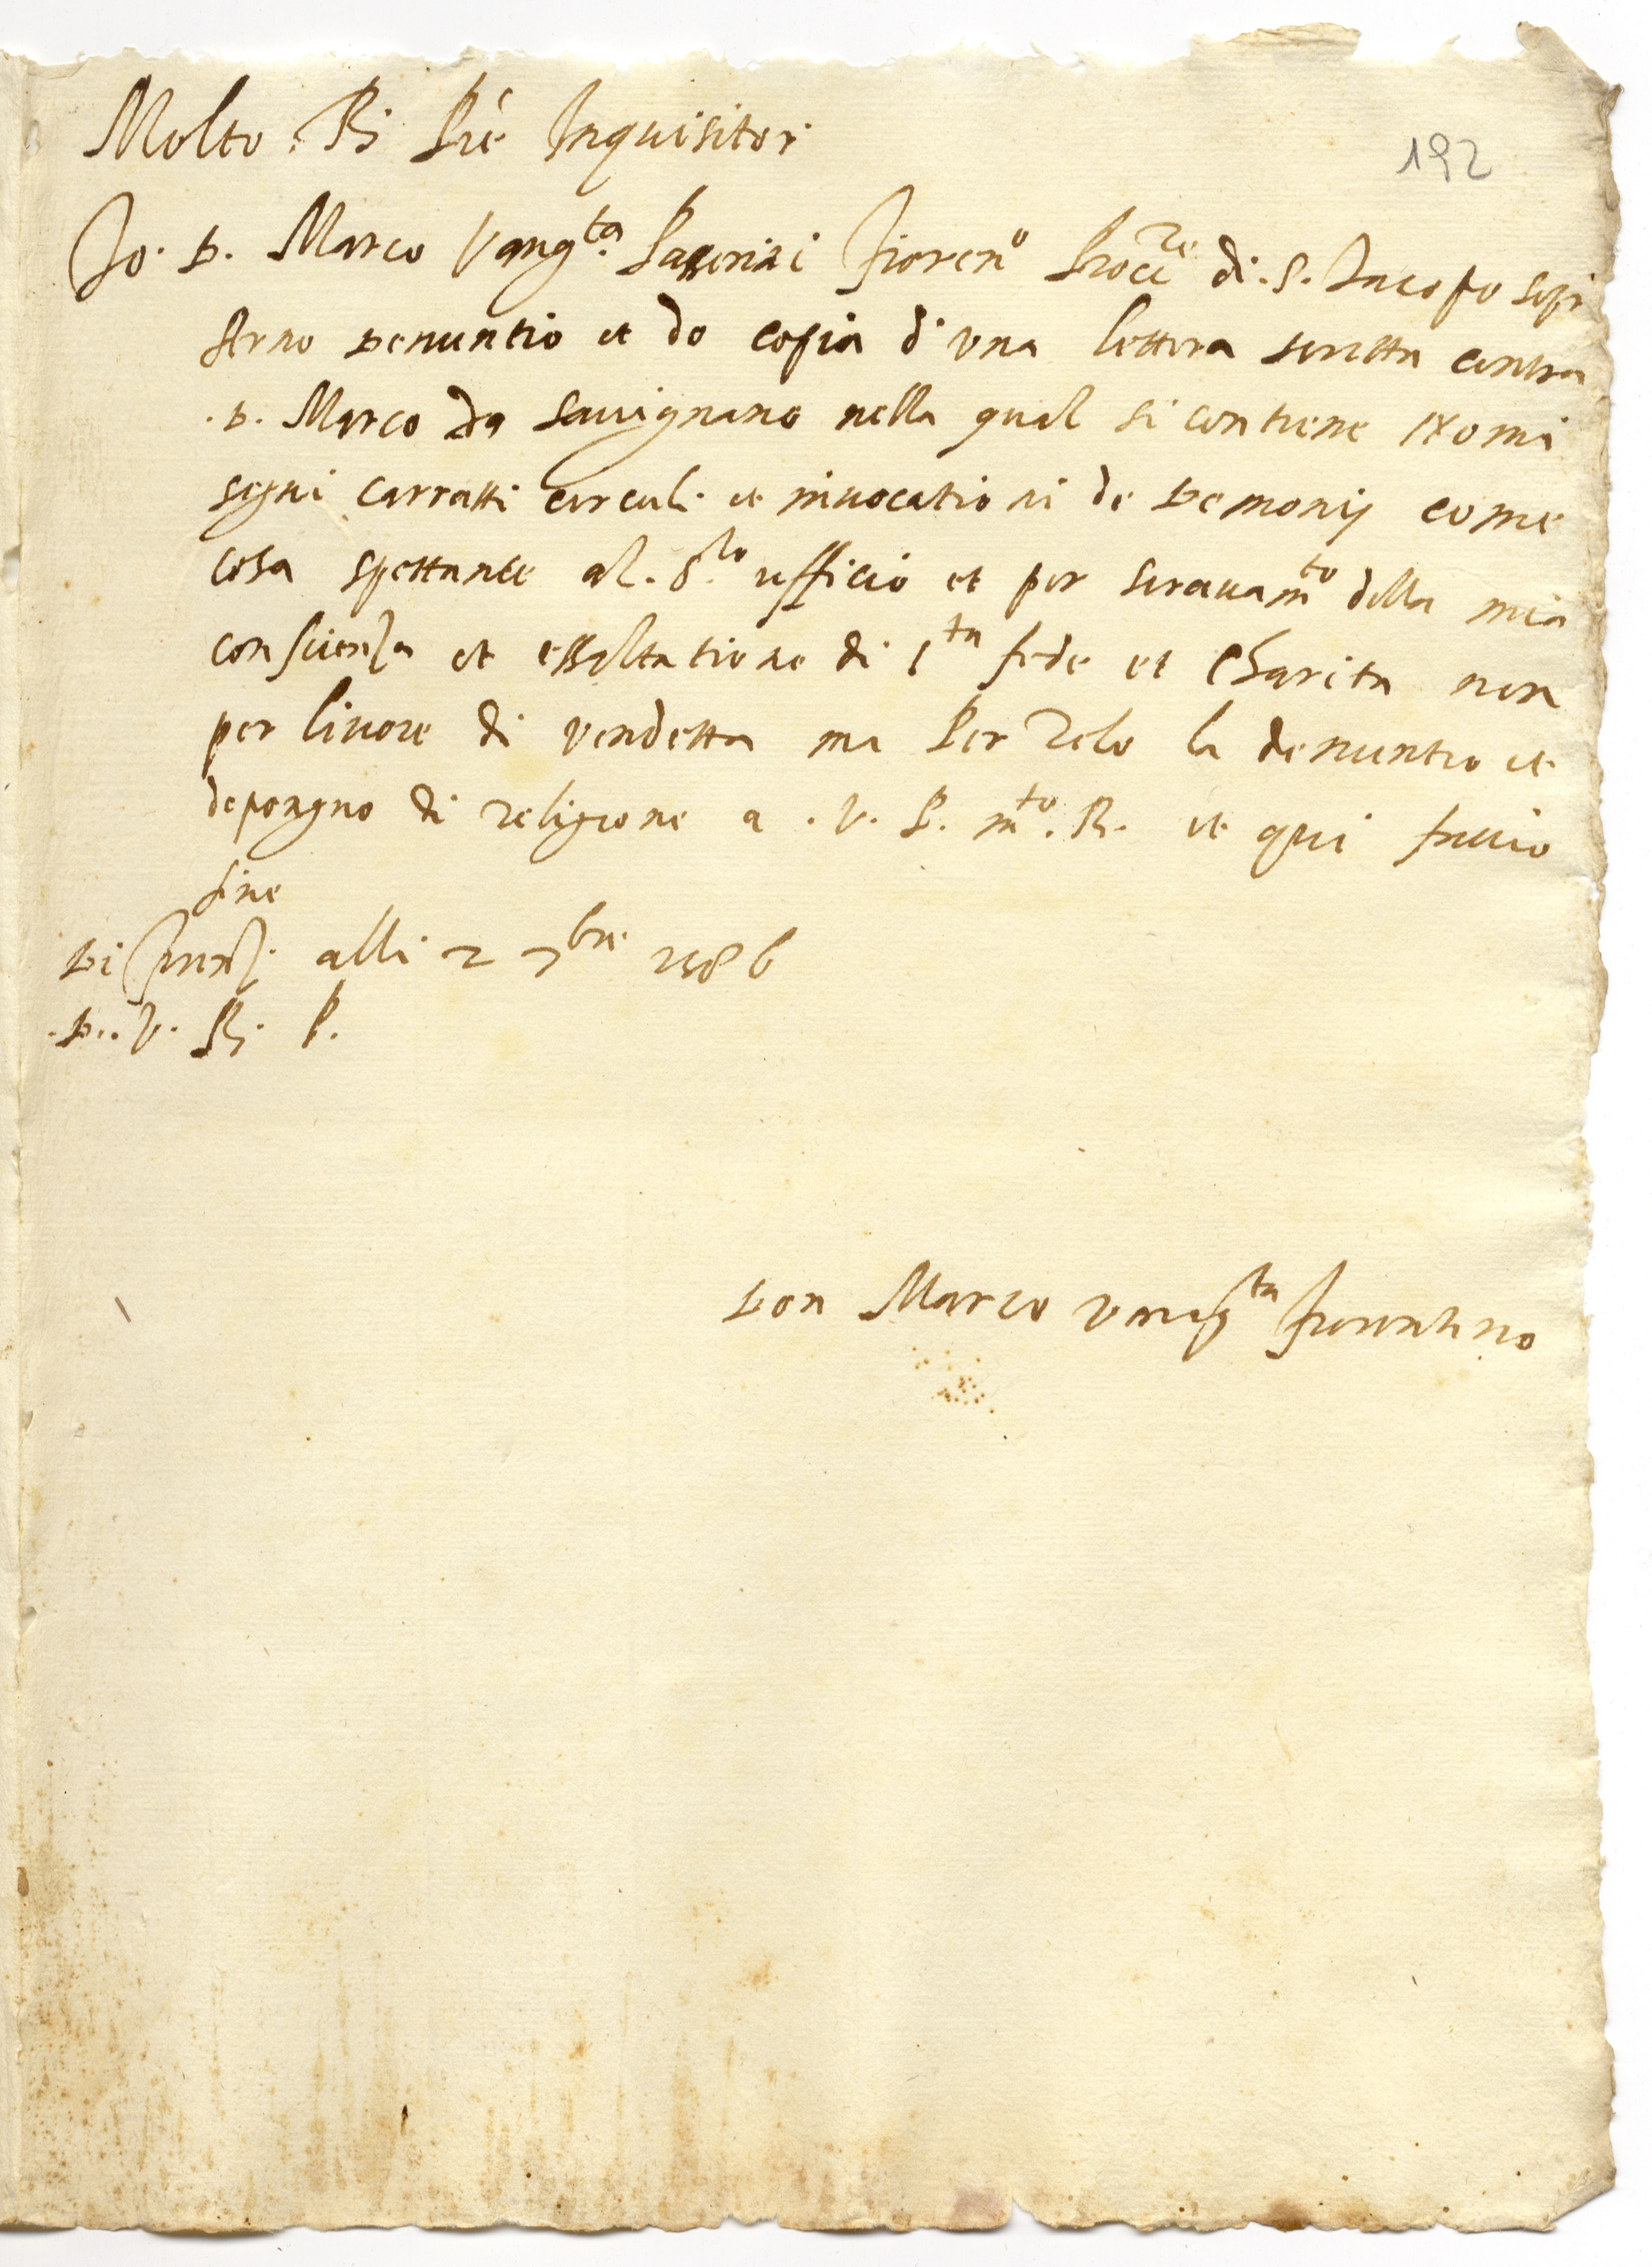 Molto R. Prē Inquisitor
192
Io. D. Marco Vang.ta Passerini fioren.o Procu.re di. S. Jacopo sopr
Arno Denuntio et do copia d'una lettera scritta contra
.D. Marco da Savignano nella qual si contiene nomi
segni carratti circuli et invocationi de Demonij come
cosa spettante al. S.to ufficio et per scravam.to della mia
conscienza et essaltatione di S.ta fede et Charita non
per livore di vendetta ma Per Zelo la denuntio et
depongno di religione a .V. P. m.to. R. et qui faccio
fine
Di firenz. alli 2 7bre 1586
.D.. V. R. P.
Don Marco Vang.ta fiorentino